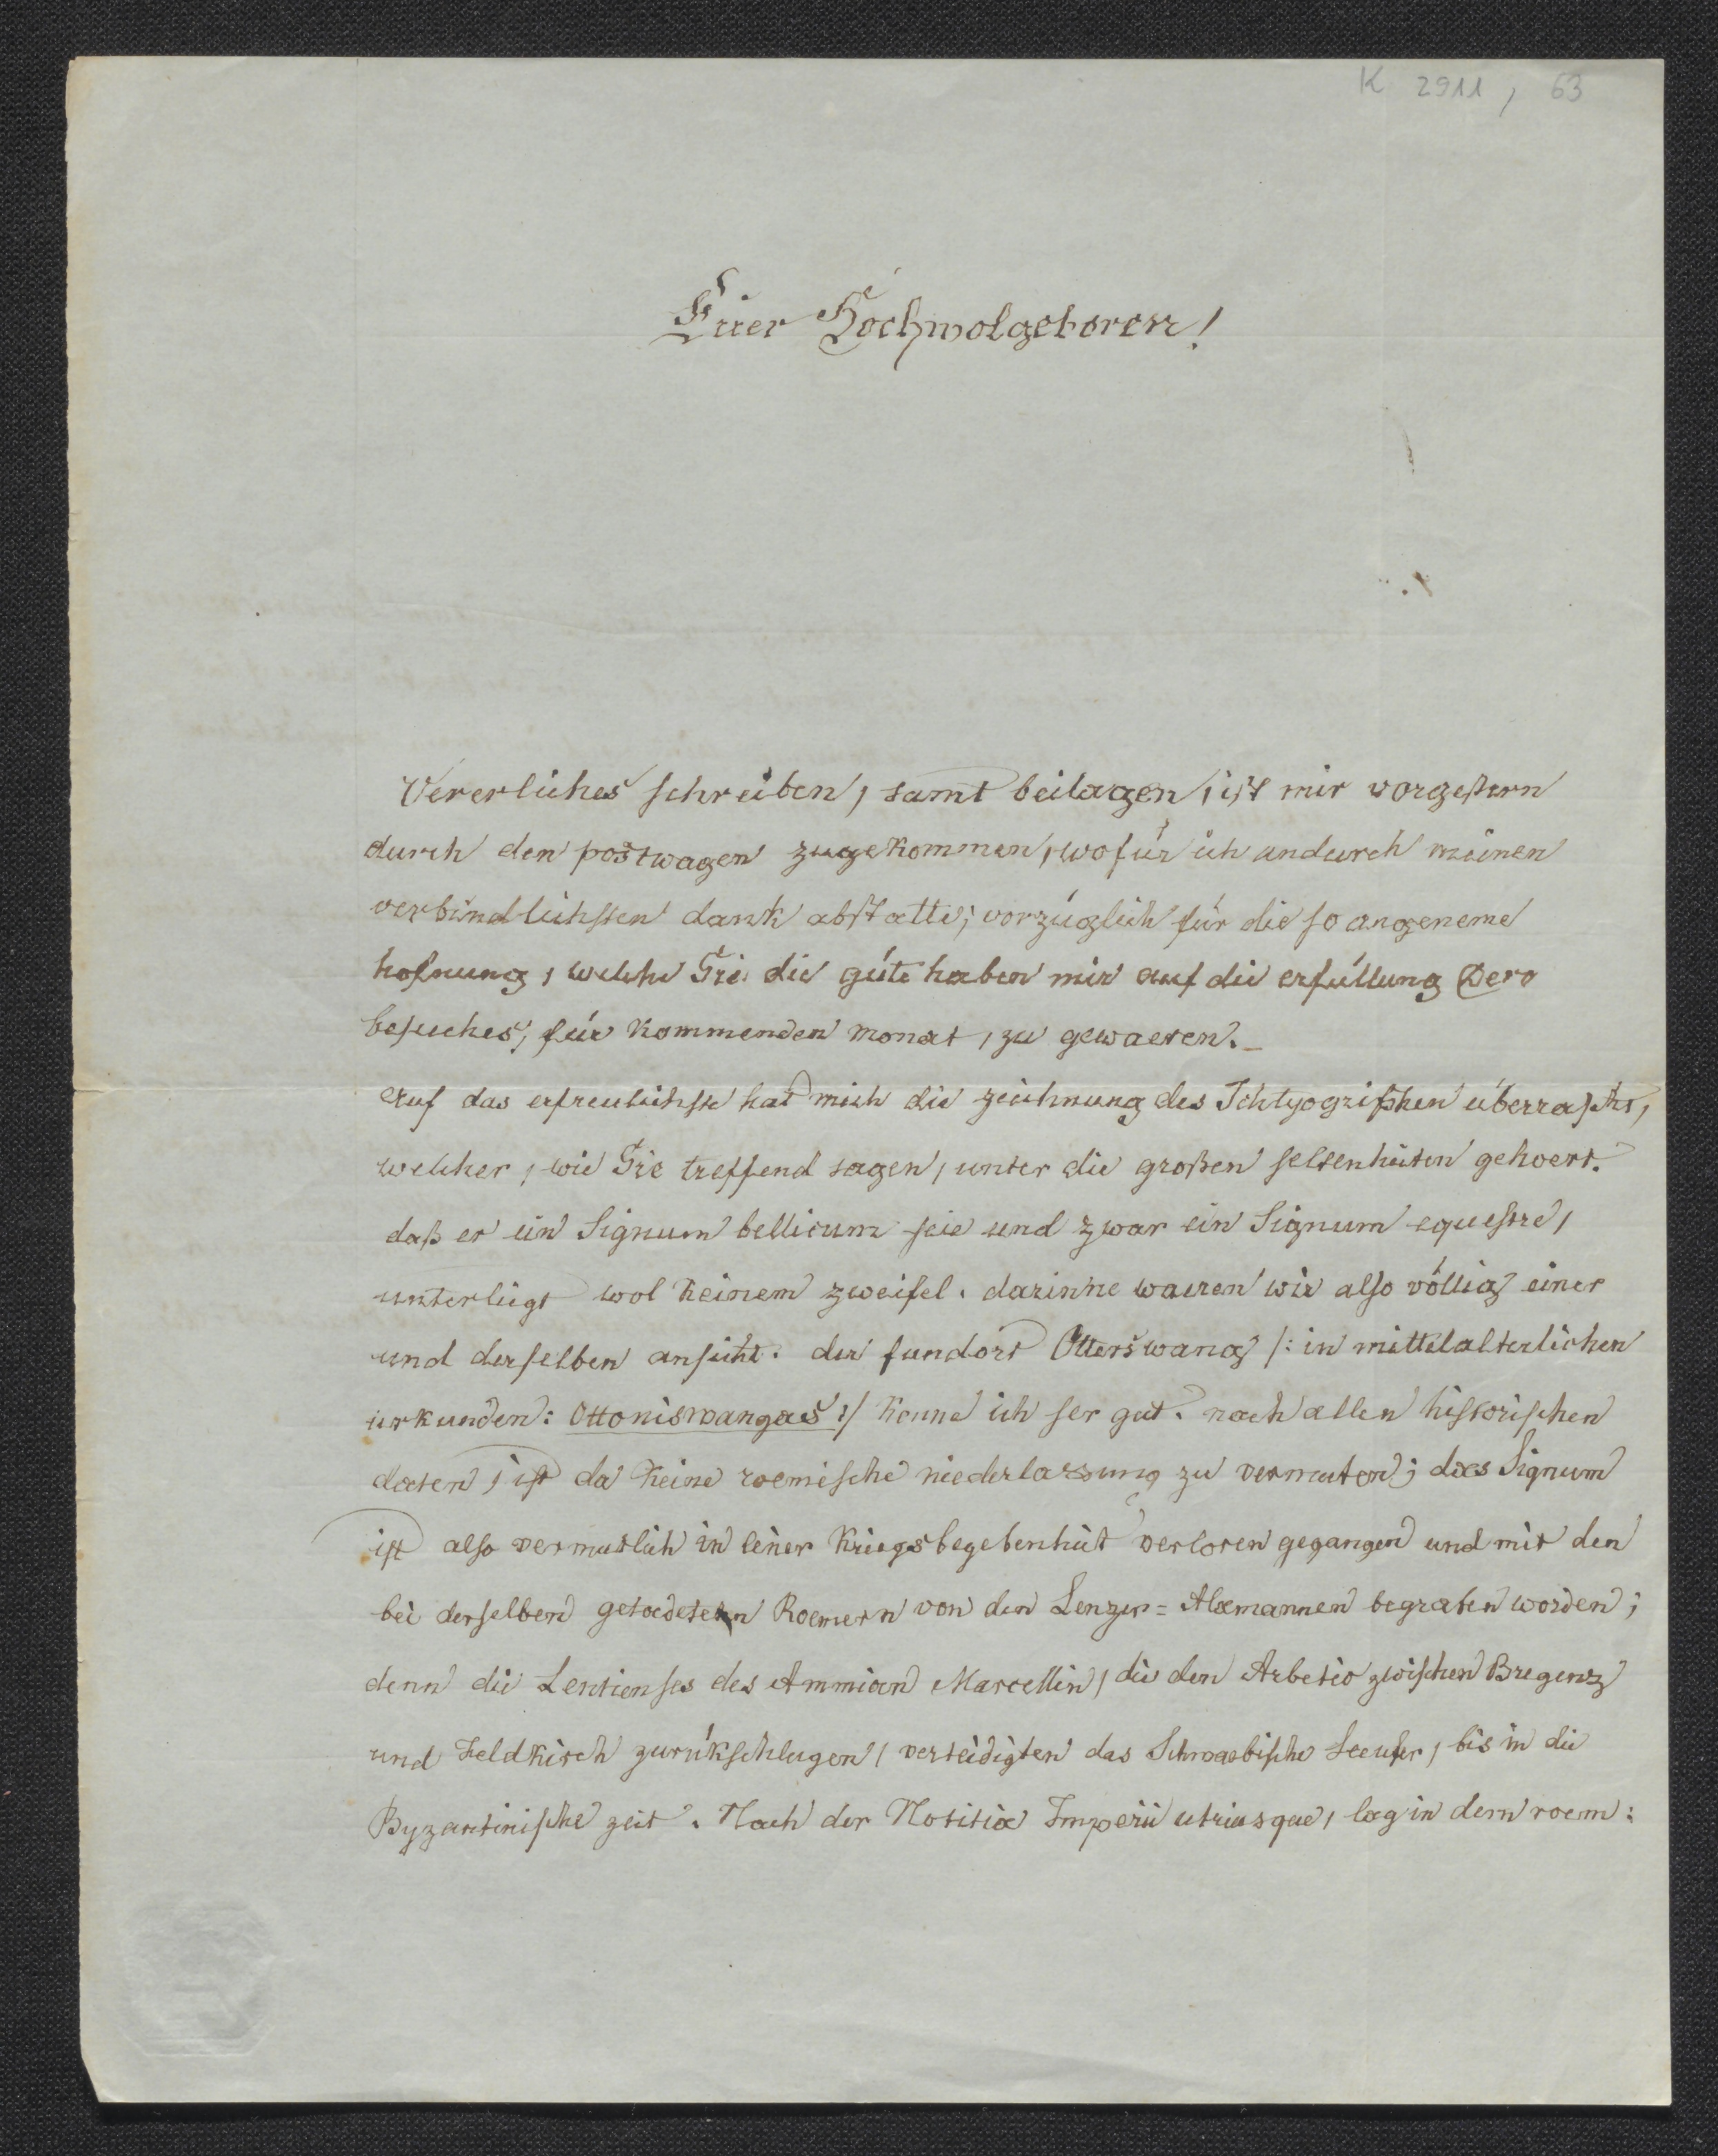 K 2911, 63
Euer Hochwolgeboren!
Vererliches schreiben, samt beilagen, ist mir vorgestern
durch den postwagen zugekommen, wofür ich andurch meinen
verbindlichsten dank abstatte; vorzüglich für die so angeneme
hofnung, welche Sie die güte haben mir auf die erfüllung Dero
besuches, für kommenden monat, zu gewaeren._
auf das erfreulichste hat mich die zeichnung des Ichtyogrißhen überrascht,
welcher, wie Sie treffend sagen, unter die großen seltenheiten gehoert.
daß er ein Signum bellicum seie und zwar ein Signum equestre,
unterliegt wol keinem zweifel. darinne waeren wir also völlig einer
und derselben ansicht. der fundort Otterswang /: in mittelalterlichen
urkunden: Ottoniswangas :/ kenne ich ser gut. nach allen historischen
daten, ist da keine roemische niederlassung zu vermuten; das Signum
ist also vermutlich in einer kriegsbegebenheit verloren gegangen und mit den
bei derselben getoedeten Roemern von den Lenzer=Alemannen begraben worden;
denn die Lentienses des Ammian Marcellin, die den Arbetio zwischen Bregenz
und Feldkirch zurükschlugen, verteidigten das Schwaebische Seeufer, bis in die
Byzantinische zeit. Nach der Notitia Imperii utriusque, lag in dem roem: